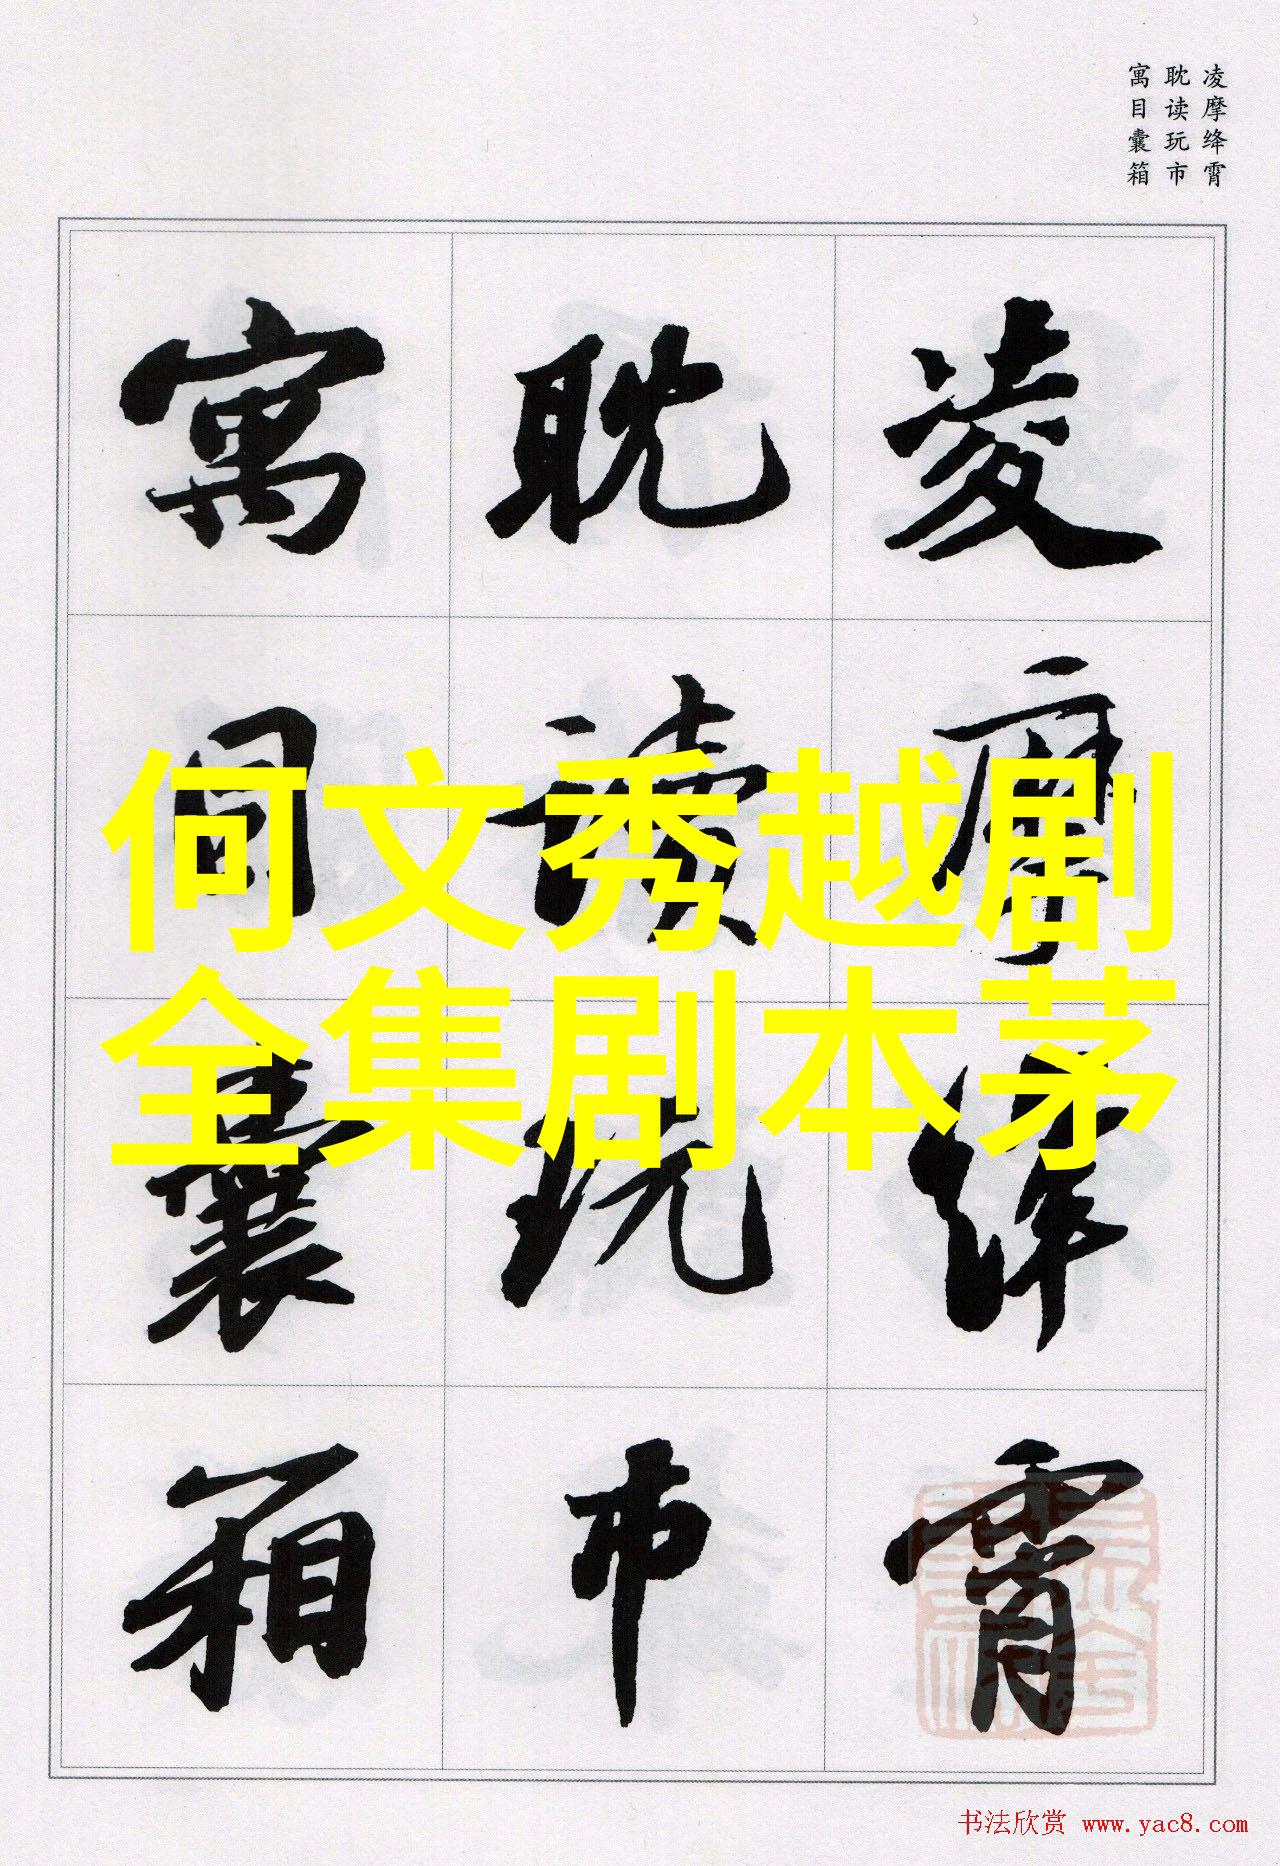 凌摩绛霄
耽读玩市
寓目囊箱
凌摩绛霄
耽读玩市
寓目囊箱
何文秀越剧
全集剧本茅
书法欣赏 www.yac8.com